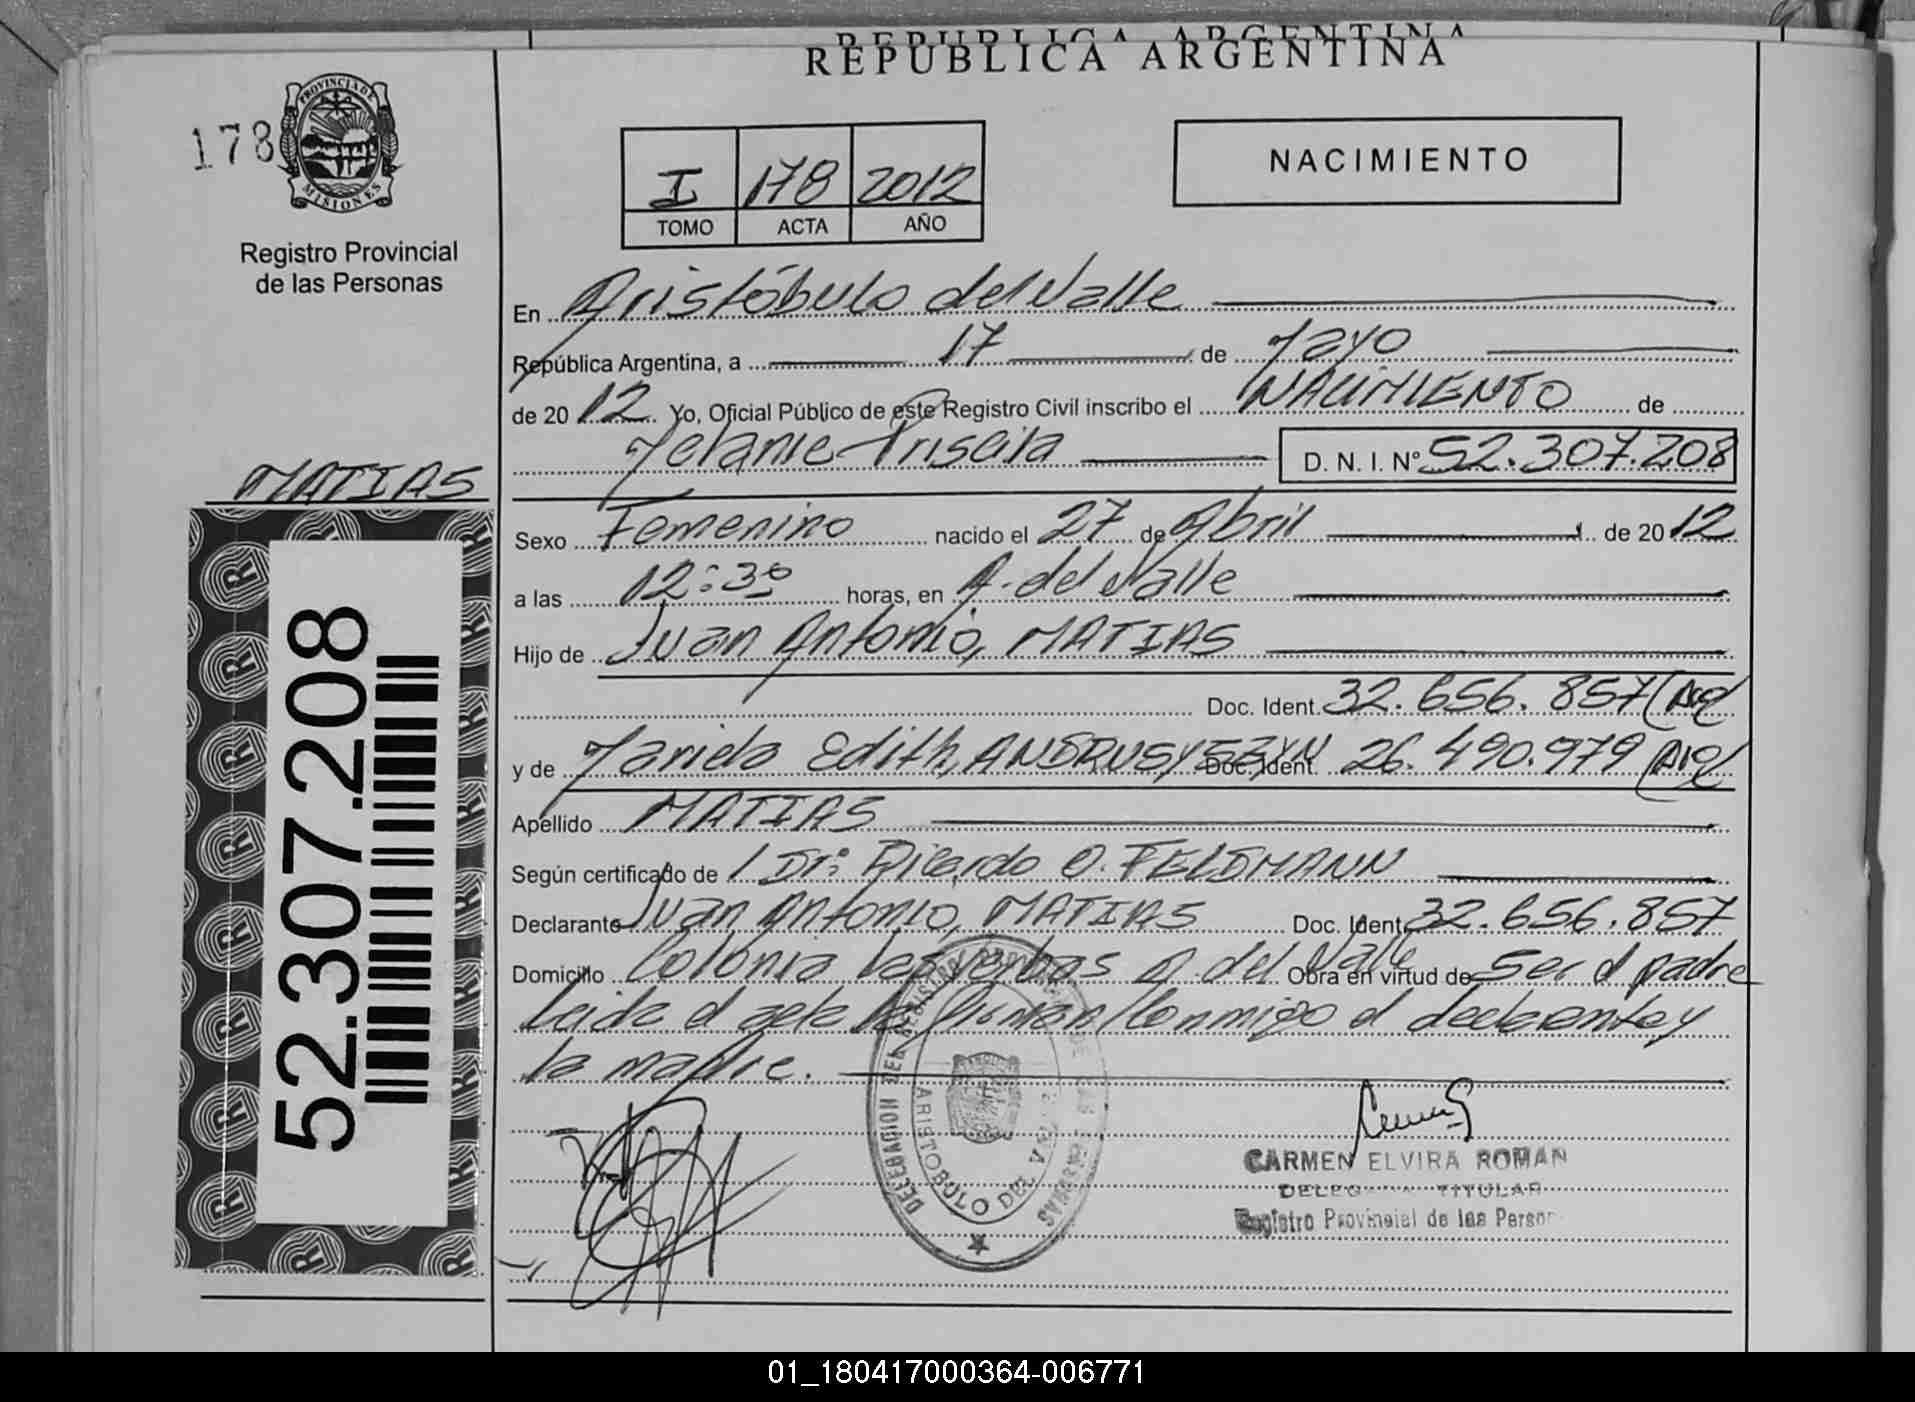 REPUBLICA ARGENTINA
REPUBLICA ARGENTINA
178
PROVINCIA DE
MISIONES
Registro Provincial
de las Personas
I 178 2012
TOMO ACTA AÑO
NACIMIENTO
En Aristóbulo del Valle
República Argentina, a 17 de Mayo
de 2012 Yo, Oficial Público de este Registro Civil inscribo el NACIMIENTO de
Melanie Priscila D. N. I. Nº 52.307.208
MATIAS
Sexo Femenino nacido el 27 de Abril de 2012
a las 12:30 horas, en A. del Valle
Hijo de Juan Antonio, MATIAS
Doc. Ident. 32.656.857
y de Mariela Edith, ANDRUSYSZYN Doc. Ident. 26.490.979
Apellido MATIAS
Según certificado de Dr: Ricardo O. FELDMANN
Declarante Juan Antonio, MATIAS Doc. Ident. 32.656.857
Domicilio Colonia Las Yerbas A. del Valle Obra en virtud de Ser el padre
Leida el acta la firman Conmigo el declarante y
la madre.
52.307.208
DELEGACION DEL REGISTRO PROVINCIAL DE LAS PERSONAS
ARISTOBULO DEL VALLE
CARMEN ELVIRA ROMAN
DELEGADA TITULAR
Registro Provincial de las Person
01_180417000364-006771